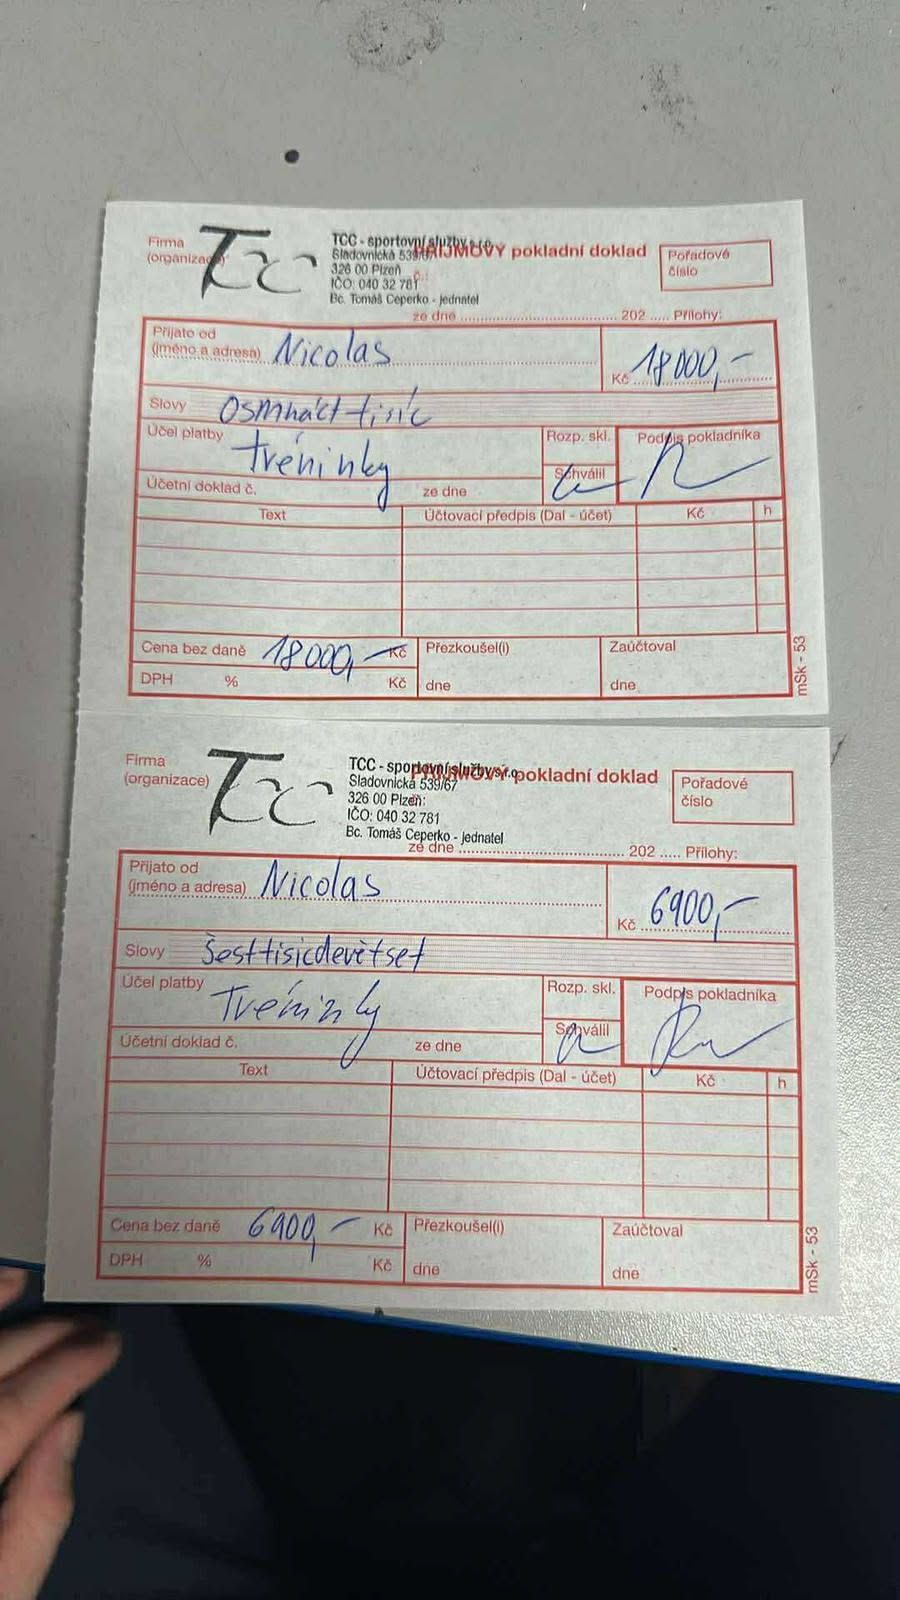 Firma
(organizace)
TCC
TCC - sportovní služby s.r.o.
PŘÍJMOVÝ pokladní doklad
Sladovnická 539/67
326 00 Plzeň
č.:
IČO: 040 32 781
Bc. Tomáš Ceperko - jednatel
Pořadové
číslo
ze dne 202 Přílohy:
Přijato od
(jméno a adresa) Nicolas
Kč 18 000,-
Slovy Osmnáct tisíc
Účel platby Tréninky
Rozp. skl.
Podpis pokladníka
Schválil
Účetní doklad č. ze dne
Text Účtovací předpis (Dal - účet) Kč h
Cena bez daně 18 000,- Kč
Přezkoušel(i) Zaúčtoval
DPH % Kč
dne dne
mSk - 53
Firma
(organizace)
TCC
TCC - sportovní služby s.r.o.
PŘÍJMOVÝ pokladní doklad
Sladovnická 539/67
326 00 Plzeň
IČO: 040 32 781
Bc. Tomáš Ceperko - jednatel
Pořadové
číslo
ze dne 202 Přílohy:
Přijato od
(jméno a adresa) Nicolas
Kč 6900,-
Slovy Šesttisícdevětset
Účel platby Tréninky
Rozp. skl.
Podpis pokladníka
Schválil
Účetní doklad č. ze dne
Text Účtovací předpis (Dal - účet) Kč h
Cena bez daně 6900,- Kč
Přezkoušel(i) Zaúčtoval
DPH % Kč
dne dne
mSk - 53